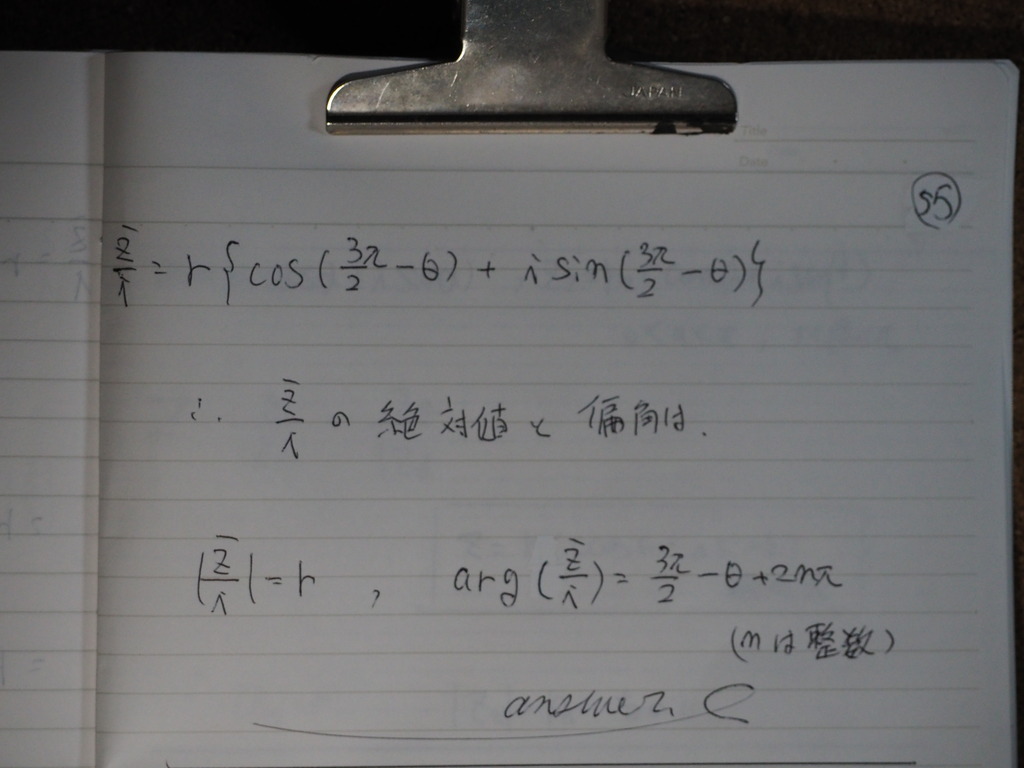 JAPAN
Title
Date
55
z̄/i = r{cos(3π/2 - θ) + i sin(3π/2 - θ)}
∴ z̄/i の 絶対値と 偏角は、
|z̄/i| = r , arg(z̄/i) = 3π/2 - θ + 2nπ
(nは整数)
answer.